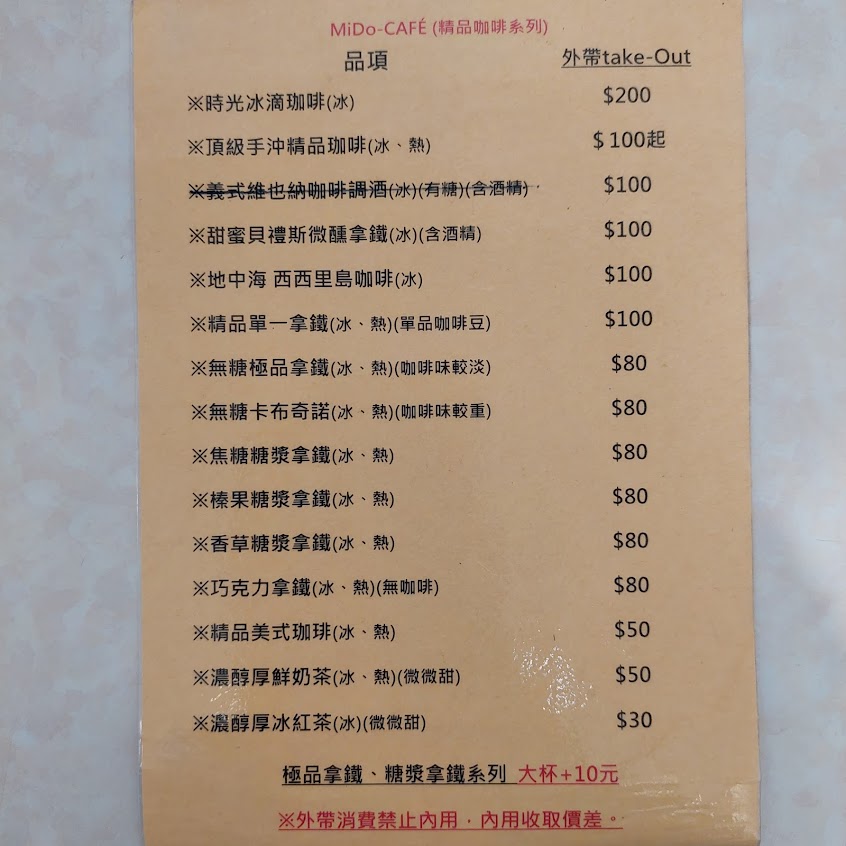 MiDo-CAFÉ (精品咖啡系列)
品項 外帶take-Out
※時光冰滴珈啡(冰) $200
※頂級手沖精品珈啡(冰、熱) $100起
※義式維也納咖啡調酒(冰)(有糖)(含酒精) $100
※甜蜜貝禮斯微醺拿鐵(冰)(含酒精) $100
※地中海 西西里島咖啡(冰) $100
※精品單一拿鐵(冰、熱)(單品咖啡豆) $100
※無糖極品拿鐵(冰、熱)(咖啡味較淡) $80
※無糖卡布奇諾(冰、熱)(咖啡味較重) $80
※焦糖糖漿拿鐵(冰、熱) $80
※榛果糖漿拿鐵(冰、熱) $80
※香草糖漿拿鐵(冰、熱) $80
※巧克力拿鐵(冰、熱)(無咖啡) $80
※精品美式珈琲(冰、熱) $50
※濃醇厚鮮奶茶(冰、熱)(微微甜) $50
※濃醇厚冰紅茶(冰)(微微甜) $30
極品拿鐵、糖漿拿鐵系列 大杯+10元
※外帶消費禁止內用，內用收取價差。